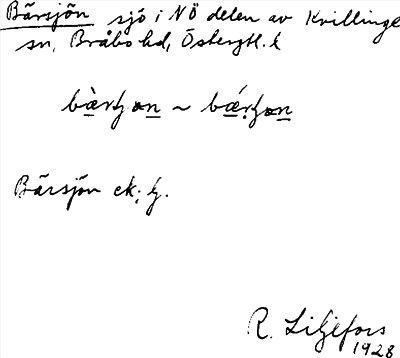 Bärsjön sjö i NÖ delen av Kvillinge
sn, Bråbo hd, Östergtl. l
~
Bärsjön ek; g.
R. Liljefors
1928